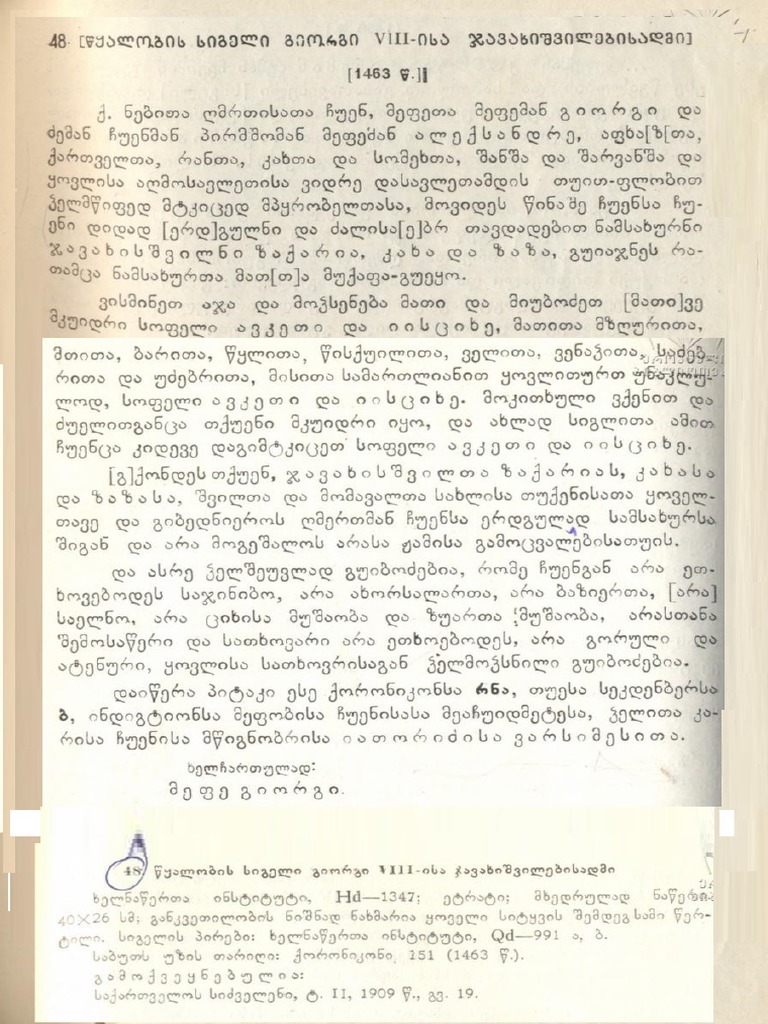 48. [წყალობის სიგელი გეორგი VIII-ისა ჯავახიშვილებისადმი]
[1463 წ.]
ქ. ნებითა ღმრთისათა ჩუენ, მეფეთა მეფემან გიორგი და
ძემან ჩუენმან პირმშომან მეფემან ალექსანდრე, აფხა[ზ[თა,
ქართველთა, რანთა, კახთა და სომეხთა, შანშა და შარვანშა და
ყოვლისა აღმოსავლეთისა ვიდრე დასავლეთამდის თუით-ფლობით
ჴელმწიფედ მტკიცედ მპყრობელთასა, მოვიდეს წინაშე ჩუენსა ჩუ-
ენი დიდად [ერდ]გულნი და ძალისა[ე]ბრ თავდადებით ნამსახურნი
ჯავახისშვილნი ზაქარია, კახა და ზაზა, გუიაჯნეს რა-
თამცა ნამსახურთა მათ[თ]ა მუქაფა-გუეყო.
ვისმინეთ აჯა და მოჴსენება მათი და მიუბოძეთ [მათი]ვე
მკუიდრი სოფელი ავკეთი და იისციხე, მათითა მზღურითა,
მთითა, ბარითა, წყლითა, წისქუილითა, ველითა, ვენაჴითა, საძებ-
რითა და უძებრითა, მისითა სამართლიანით ყოვლითურთ უნაკლუ-
ლოდ, სოფელი ავკეთი და იისციხე. მოკითხული ვქენით და
ძუელითგანცა თქუენი მკუიდრი იყო, და ახლად სიგლითა ამით
ჩუენცა კიდევე დაგიმტკიცეთ სოფელი ავკეთი და იისციხე.
[გ]ქონდეს თქუენ, ჯავახისშვილთა ზაქარიას, კახასა
და ზაზასა, შვილთა და მომავალთა სახლისა თუქენისათა ყოველ-
თავე და გიბედნიეროს ღმერთმან ჩუენსა ერდგულად სამსახურსა
შიგან და არა მოგეშალოს არასა ჟამისა გამოცვალებისათუის.
და ასრე ჴელშეუვლად გუიბოძებია, რომე ჩუენგან არა ეთ-
ხოვებოდეს საჯინიბო, არა ახორსალართა, არა ბაზიერთა, [არა]
საელნო, არა ციხისა მუშაობა და ზუართა მუშაობა, არასთანა
შემოსაწერი და სათხოვარი არა ეთხოებოდეს, არა გორული და
ატენური, ყოვლისა სათხოვრისაგან ჴელმოჴსნილი გუიბოძებია.
დაიწერა პიტაკი ესე ქორონიკონსა რნა, თუესა სეკდენბერსა
ბ, ინდიგტიონსა მეფობისა ჩუენისასა მეაჩუიდმეტესა, ჴელითა კა-
რისა ჩუენისა მწიგნობრისა იათორიძისა ვარსიმესითა.
ხელჩართულად:
მეფე გიორგი.
48 წყალობის სიგელი გიორგი VIII-ისა ჯავახიშვილებისადმი
ხელნაწერთა ინსტიტუტი, Hd—1347; ეტრატი; მხედრულად ნაწერი;
40×26 სმ; განკვეთილობის ნიშნად ნახმარია ყოველი სიტყვის შემდეგ სამი წერ-
ტილი. სიგელის პირები: ხელნაწერთა ინსტიტუტი, Qd—991 ა, ბ.
საბუთს უზის თარიღი: ქორონიკონი 151 (1463 წ.).
გამოქვეყნებულია:
საქართველოს სიძველენი, ტ. II, 1909 წ., გვ. 19.